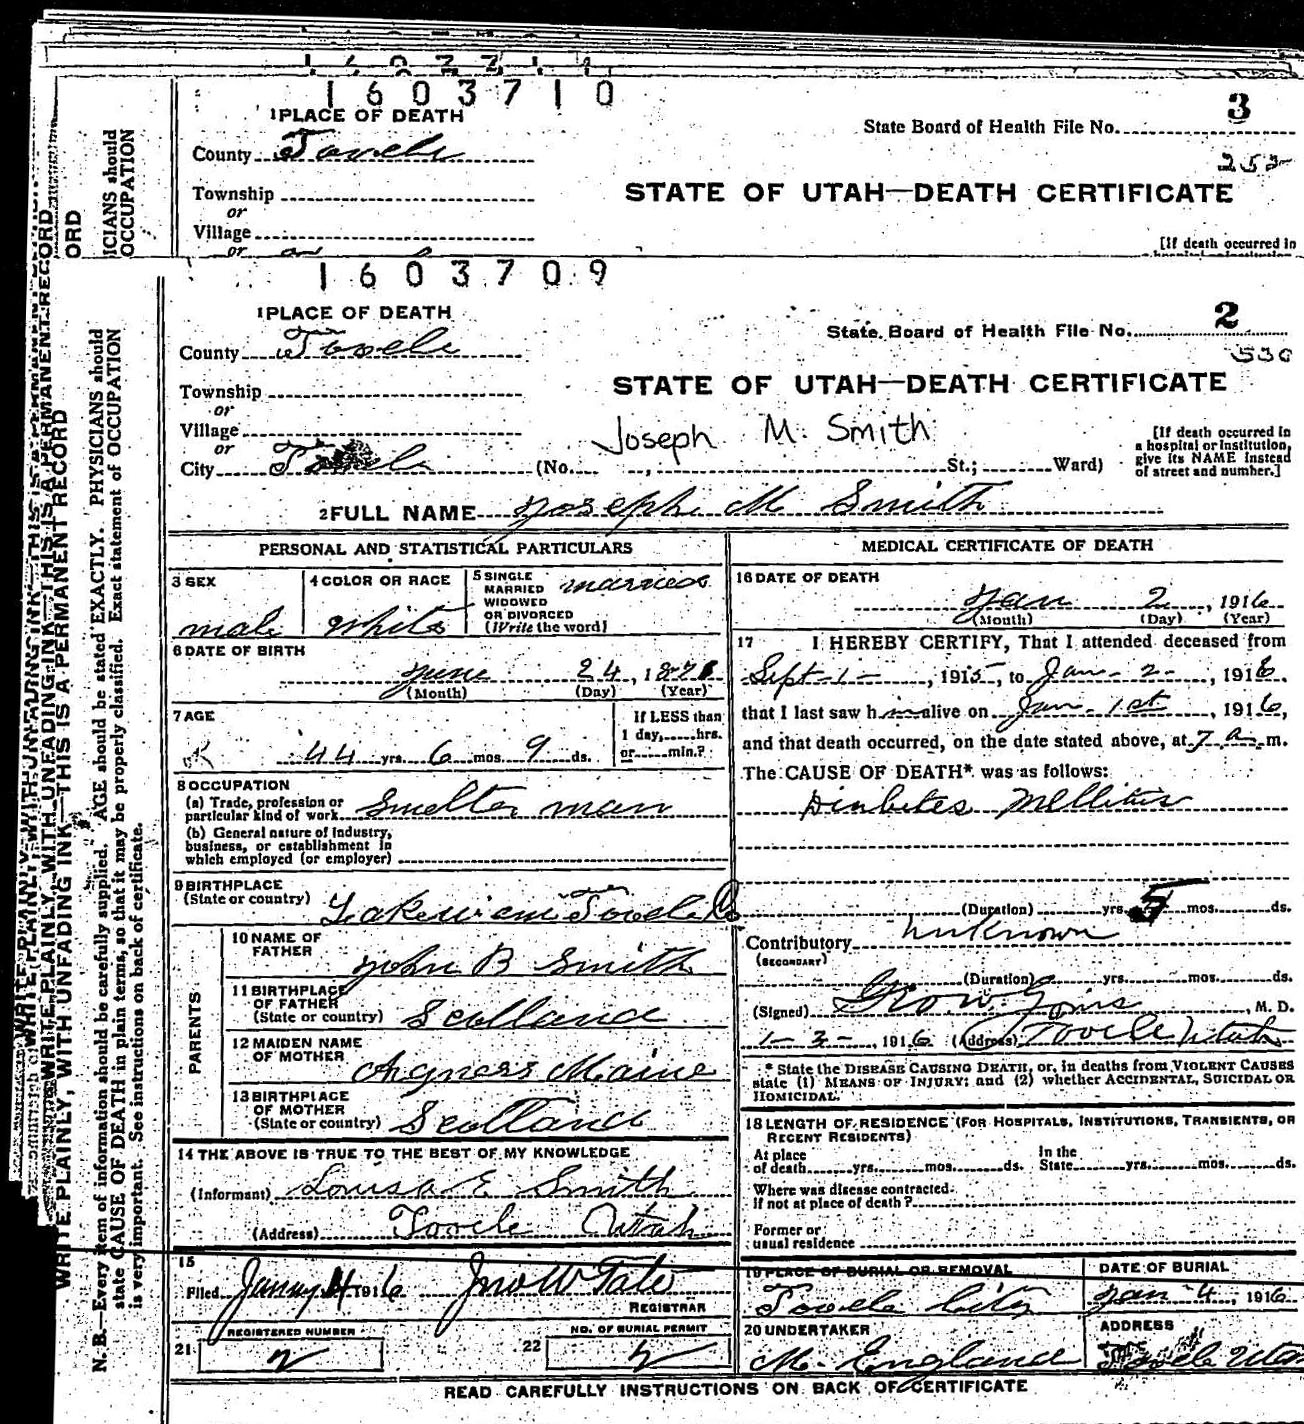 1603710
1 PLACE OF DEATH
State Board of Health File No. 3
County Tooele
252
Township
STATE OF UTAH—DEATH CERTIFICATE
or
Village
or
[If death occurred in
1603709
1 PLACE OF DEATH
State Board of Health File No. 2
County Tooele
530
Township
STATE OF UTAH—DEATH CERTIFICATE
or
Village
Joseph M. Smith
or
City Tooele (No. , St.; Ward)
[If death occurred in
a hospital or institution,
give its NAME instead
of street and number.]
2 FULL NAME Joseph M Smith
PERSONAL AND STATISTICAL PARTICULARS
3 SEX
male
4 COLOR OR RACE
White
5 SINGLE
MARRIED
WIDOWED
OR DIVORCED
(Write the word)
married
6 DATE OF BIRTH
June 24, 1871
(Month) (Day) (Year)
7 AGE
44 yrs. 6 mos. 9 ds.
If LESS than
1 day, hrs.
or min.?
8 OCCUPATION
(a) Trade, profession or
particular kind of work Smelter man
(b) General nature of industry,
business, or establishment in
which employed (or employer)
9 BIRTHPLACE
(State or country) Lakeview Tooele Co
PARENTS
10 NAME OF
FATHER John B Smith
11 BIRTHPLACE
OF FATHER
(State or country) Scotland
12 MAIDEN NAME
OF MOTHER Agness Maine
13 BIRTHPLACE
OF MOTHER
(State or country) Scotland
14 THE ABOVE IS TRUE TO THE BEST OF MY KNOWLEDGE
(Informant) Louisa E Smith
(Address) Tooele Utah
15
Filed 4 1916 Jno W Tate
REGISTRAR
21 REGISTERED NUMBER
2
22 NO. OF BURIAL PERMIT
2
MEDICAL CERTIFICATE OF DEATH
16 DATE OF DEATH
Jan 2, 1916
(Month) (Day) (Year)
17 I HEREBY CERTIFY, That I attended deceased from
Sept-1-, 1915, to Jan-2-, 1916,
that I last saw him alive on Jan-1st, 1916,
and that death occurred, on the date stated above, at 7 a m.
The CAUSE OF DEATH* was as follows:
Diabetes Mellitus
(Duration) yrs. 5 mos. ds.
Contributory unknown
(SECONDARY)
(Duration) yrs. mos. ds.
(Signed) , M. D.
1-3-, 1916 (Address) Tooele Utah
* State the DISEASE CAUSING DEATH, or, in deaths from VIOLENT CAUSES
state (1) MEANS OF INJURY; and (2) whether ACCIDENTAL, SUICIDAL OR
HOMICIDAL.
18 LENGTH OF RESIDENCE (FOR HOSPITALS, INSTITUTIONS, TRANSIENTS, OR
RECENT RESIDENTS)
At place
of death yrs. mos. ds.
In the
State yrs. mos. ds.
Where was disease contracted
if not at place of death?
Former or
usual residence
19 PLACE OF BURIAL OR REMOVAL
Tooele City
DATE OF BURIAL
Jan 4, 1916
20 UNDERTAKER
M. England
ADDRESS
Tooele Utah
READ CAREFULLY INSTRUCTIONS ON BACK OF CERTIFICATE
WRITE PLAINLY, WITH UNFADING INK—THIS IS A PERMANENT RECORD
N. B.—Every item of information should be carefully supplied. AGE should be stated EXACTLY. PHYSICIANS should
state CAUSE OF DEATH in plain terms, so that it may be properly classified. Exact statement of OCCUPATION
is very important. See instructions on back of certificate.
ICIANS should
OCCUPATION
ORD